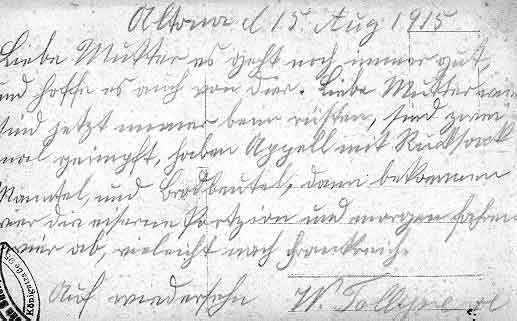 Altona d 15. Aug 1915
Liebe Mutter es geht noch immer gut,
und hoffe es auch von dier. Liebe Mutter wier
sind jetzt immer beim rüsten, sind zwei
mal geimpft, haben Appell mit Rucksack
Manntel, und Brodbeutel, dann bekommen
wier die eiserne Portzion und morgen fahren
wier ab, vieleicht nach Frankreich.
Auf wiedersehn W.
Königstraße